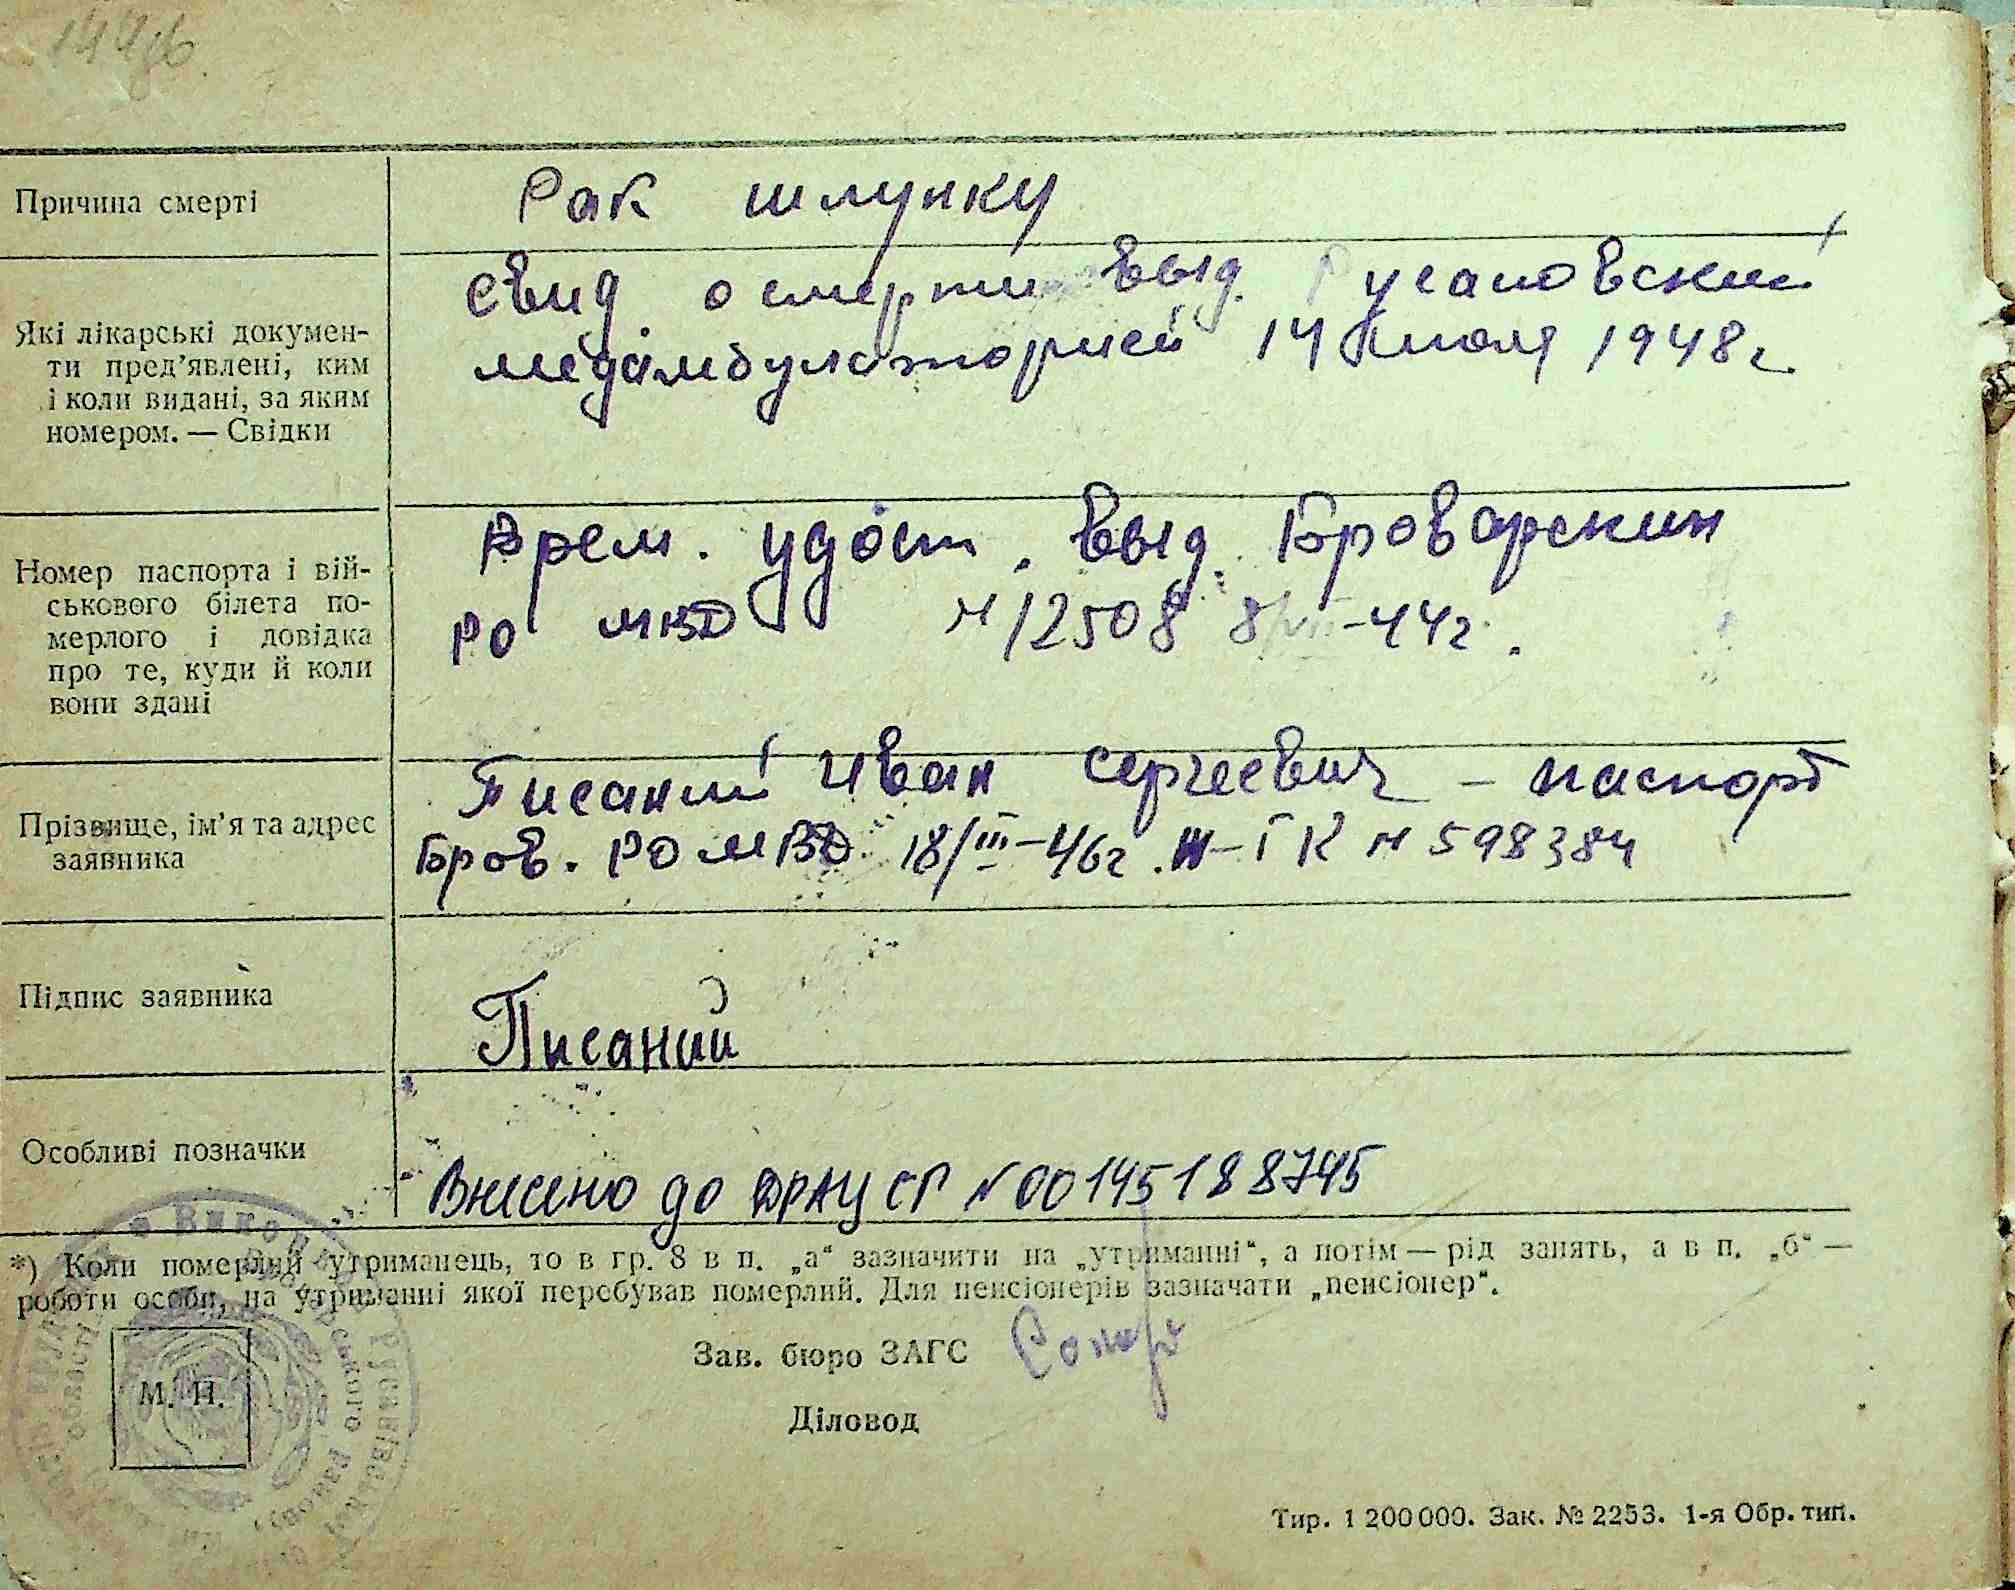 144 зв.
Причина смерті
Рак шлунку
Які лікарські докумен-
ти пред’явлені, ким
і коли видані, за яким
номером. — Свідки
Свид о смерти выд. Русановский
медамбулаторией 14 Июля 1948 г
Номер паспорта і вій-
ськового білета по-
мерлого і довідка
про те, куди й коли
вони здані
Врем. удост. выд. Броварскин
РО МВД N 12508 8/VII-44 г.
Прізвище, ім’я та адрес
заявника
Писаний Иван Сергеевич – паспорт
Бров. РО МВД 18/III-46 г. III-ГК N 598384
Підпис заявника
Писаний
Особливі позначки
Внесено до ДРАЦСГ N 00145188745
*) Коли померлий утриманець, то в гр. 8 в п. „а“ зазначити на „утриманні“, а потім — рід занять, а в п. „б“ —
роботи особи, на утриманні якої перебував померлий. Для пенсіонерів зазначати „пенсіонер“.
Зав. бюро ЗАГС
Діловод
М. П.
Тир. 1 200 000. Зак. № 2253. 1-я Обр. тип.